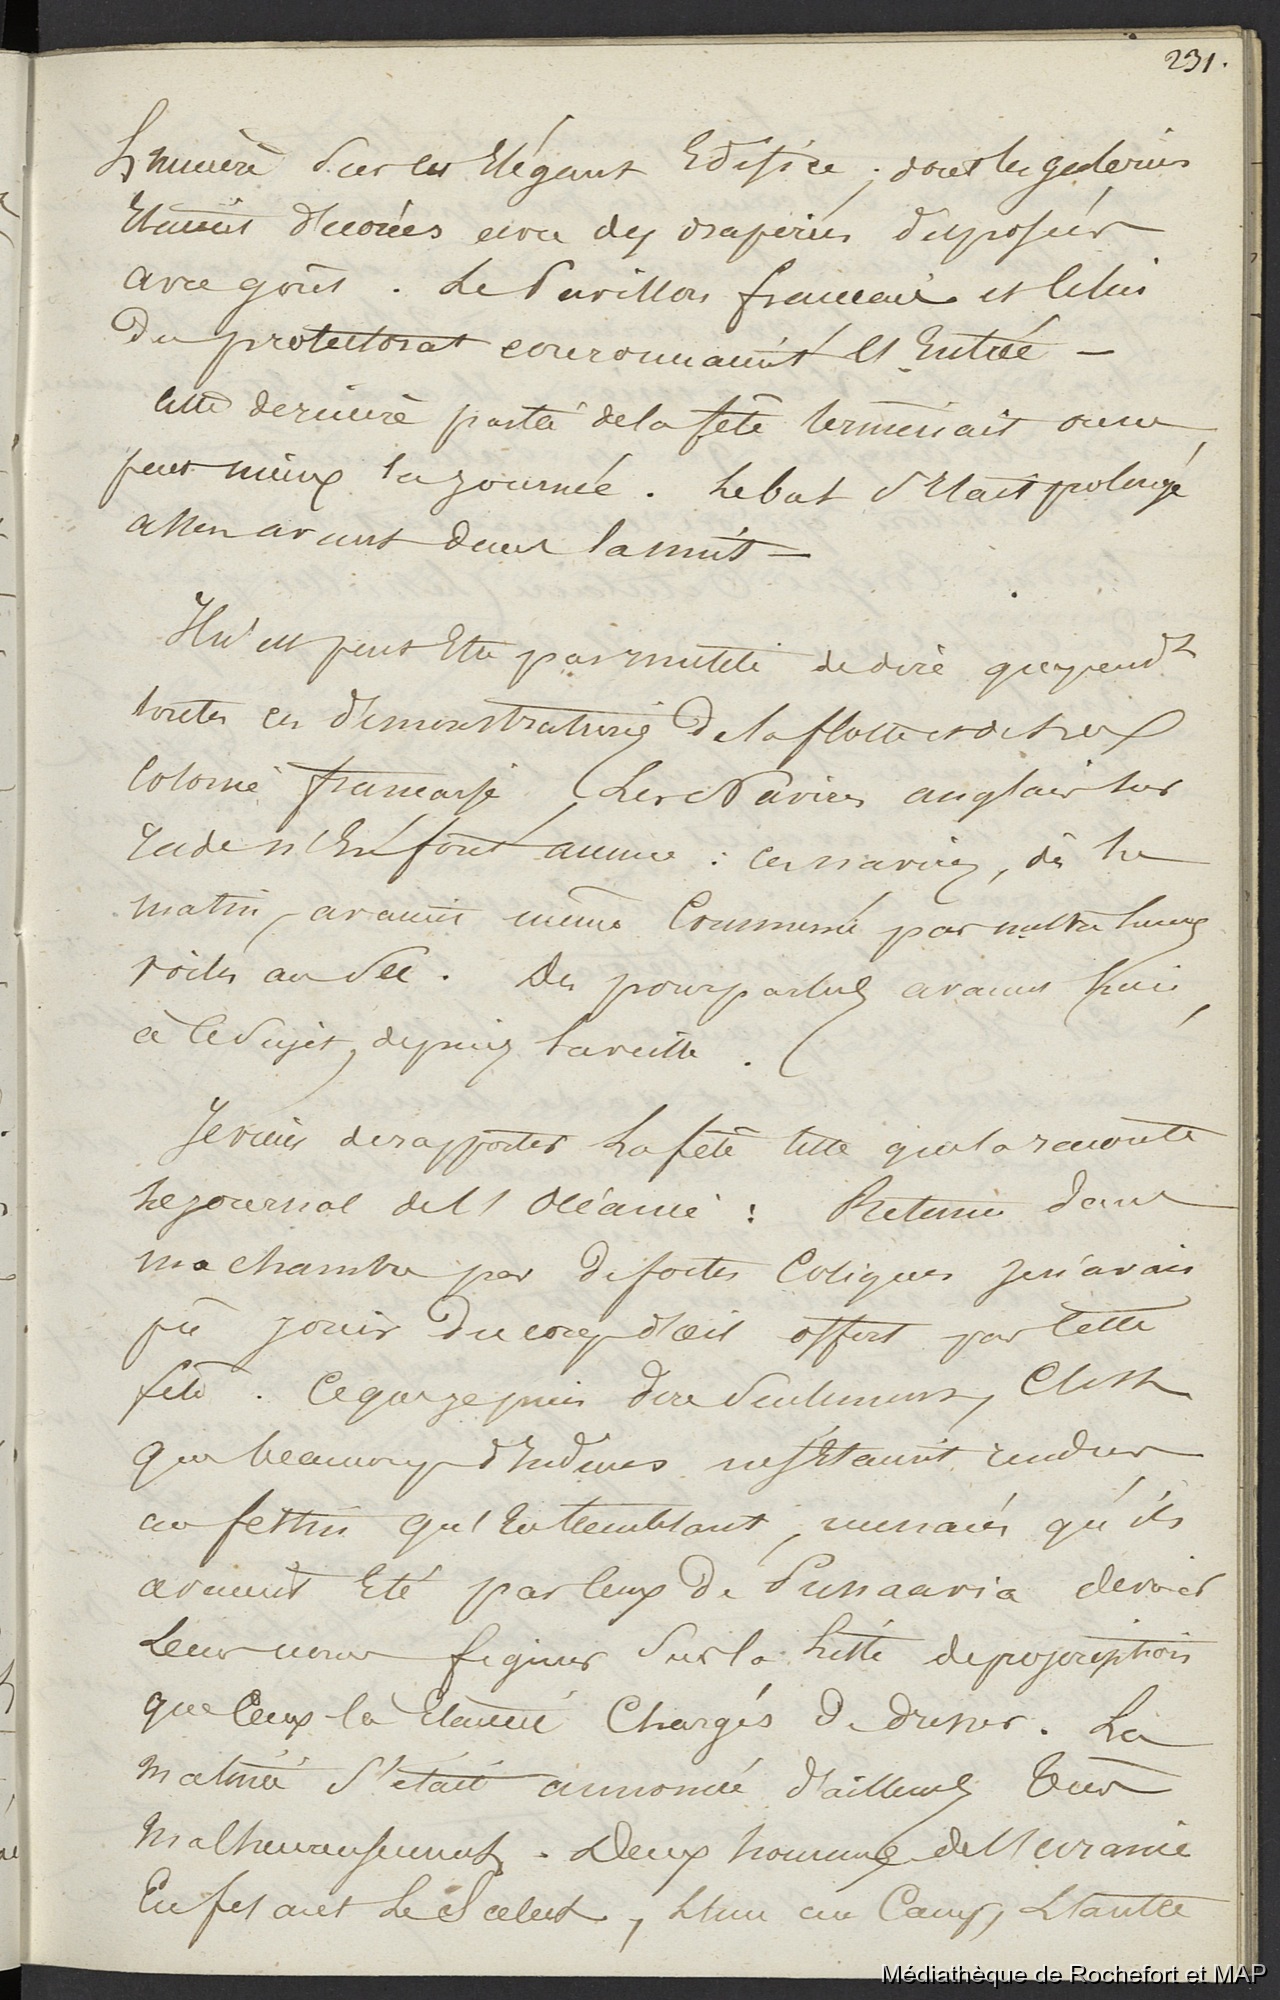 231.
Lumière sur cet Elégant Edifice ; dont les galeries
Etaient décorées avec des draperies disposées
avec goût . Le Pavillon français et Celui
du protectorat couronnaient l'Entrée —
Cette dernière partie de la fête terminait on ne
peut mieux la journée . Le bal s'était prolongé
assez avant dans la nuit —
Il n'est peut Etre pas inutile de dire que, pendt
toutes ces démonstrations de la flotte et de la
Colonie française , Les Navires anglais sur
rade n'En font aucune : ces navires, dès le
matin, avaient même Commencé par mettre leurs
voiles au Sec . Des pourparlers avaient Suivi,
à Ce Sujet, depuis la veille .
Je viens de rapporter La fête telle que la raconte
Le journal de l'Océanie : Retenu dans
ma chambre par de fortes Coliques je n'avais
pû jouir du coup d'œil offert par Cette
fête . Ce que je puis dire Seulement, C'est
que beaucoup d'Indiens ne s'Etaient rendus
au festin qu'En tremblant, menacés qu'ils
avaient Eté par Ceux de Punaavia de voir
Leurs noms figurer Sur la Liste de proscription
que Ceux là Etaient Chargés de dresser . La
matinée s'était annoncée d'ailleurs bien
Malheureusement . Deux hommes de l'Uranie
En fesant Le Salut , L'un au Camp, L'autre
Médiathèque de Rochefort et MAP